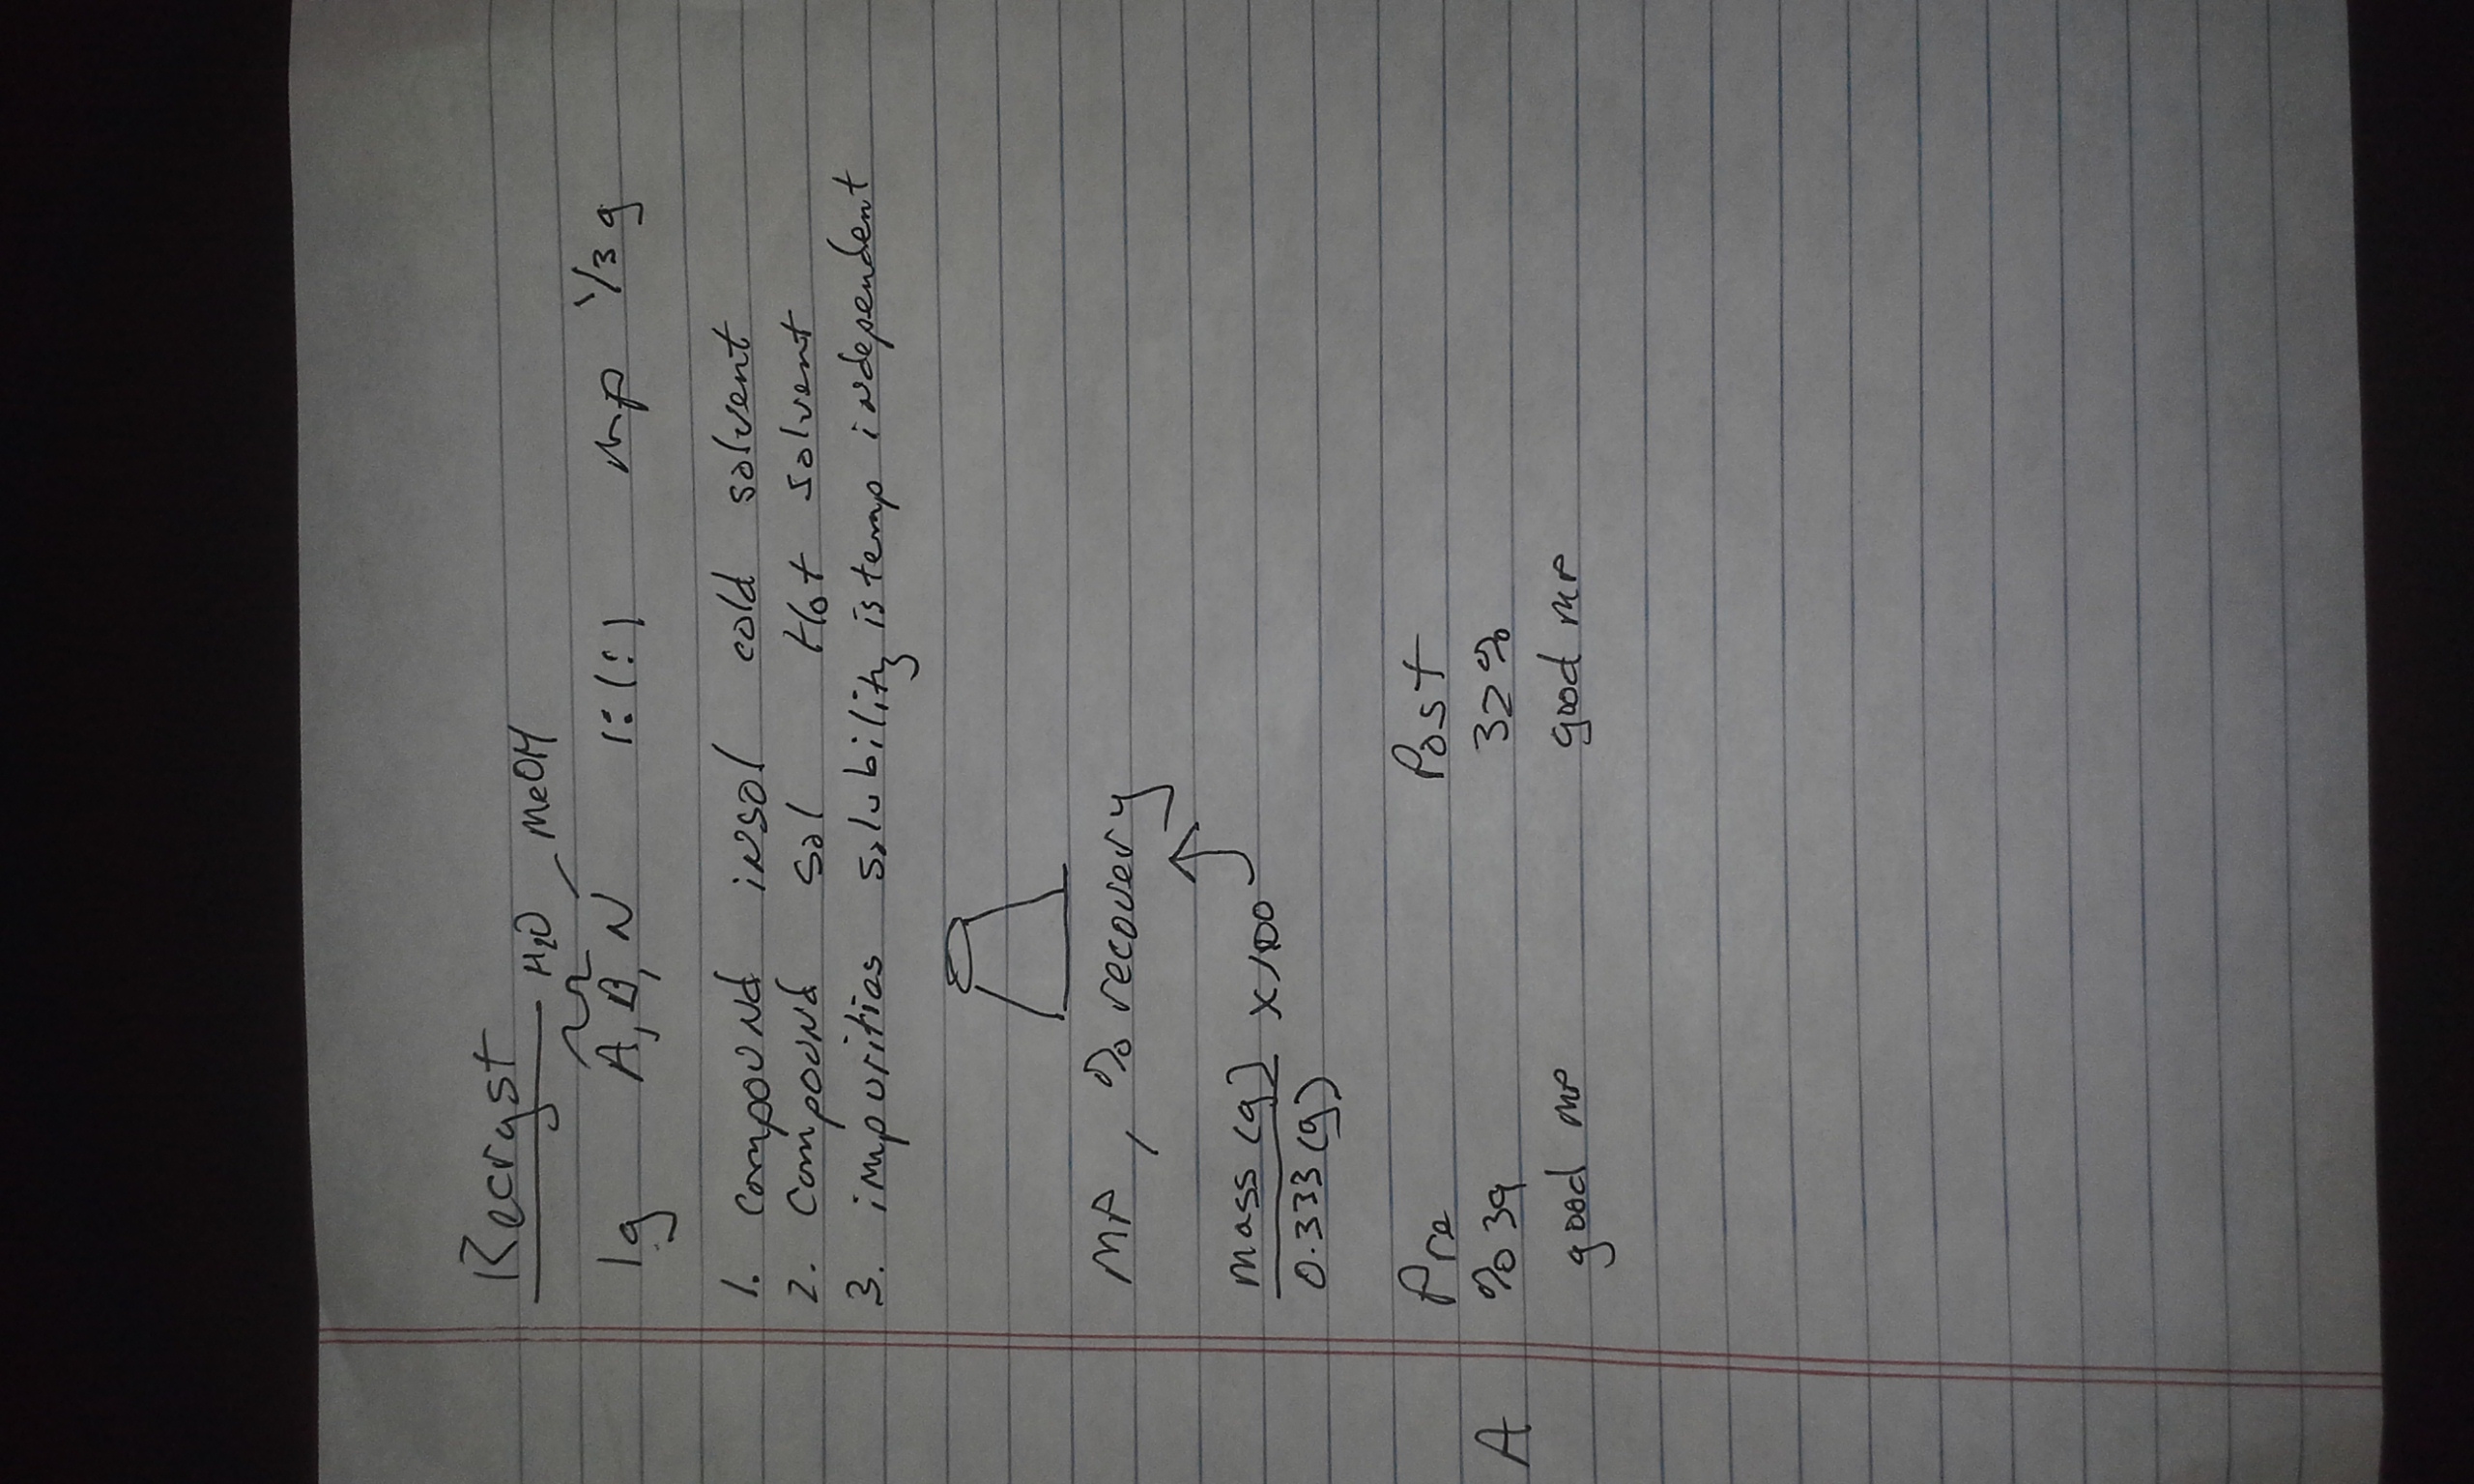 Recryst
H2O MeOH
1g A, B, N 1:1:1 mp 1/3 g
1. Compound insol cold solvent
2. Compound sol Hot solvent
3. impurities solubility is temp independent
MP, % recovery
mass (g) x100
0.333 (g)
Pre Post
A % 39 32%
good MP good MP